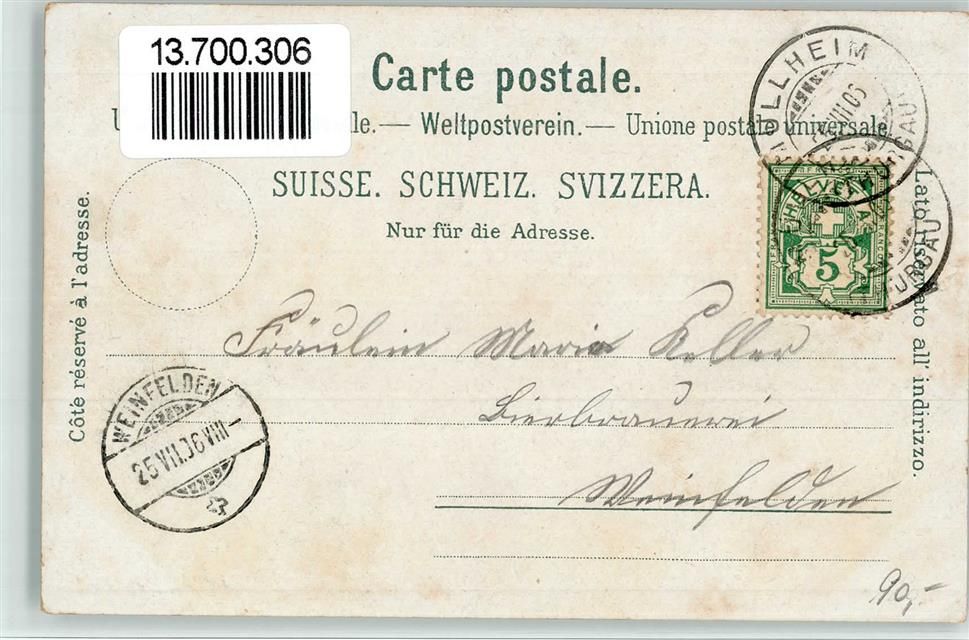 13.700.306
Carte postale.
le. — Weltpostverein. — Unione postale universale.
SUISSE. SCHWEIZ. SVIZZERA.
Nur für die Adresse.
Côté réservé à l'adresse.
Lato riservato all' indirizzo.
MÜLLHEIM THURGAU
HELVETIA
5
THURGAU
Fräulein Marie Keller
Bierbrauerei
Weinfelden
WEINFELDEN
25 VII.06 VIII –
90,-